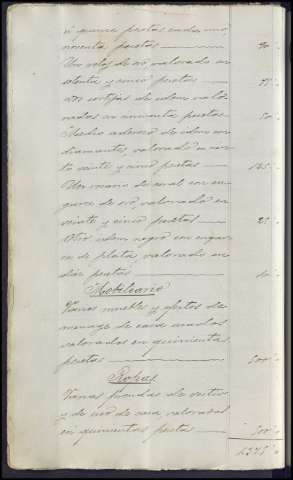 á quince pesetas cada uno,
noventa pesetas 90
Un reloj de oro valorado en
setenta y cinco pesetas 75
Dos sortijas de idem valo-
radas en cincuenta pesetas 50
Medio aderezo de idem con
diamantes, valorado en cien-
to veinte y cinco pesetas 125
Un rosario de coral con en-
garce de oro, valorado en
veinte y cinco pesetas 25
Otro idem negro con engar-
ce de plata, valorado en
diez pesetas 10
Mobiliario
Varios muebles y efectos de
menage de casa usados
valorados en quinientas
pesetas 500
Ropas
Varias prendas de vestir
y de uso de casa valoradas
en quinientas pesetas 500
1375